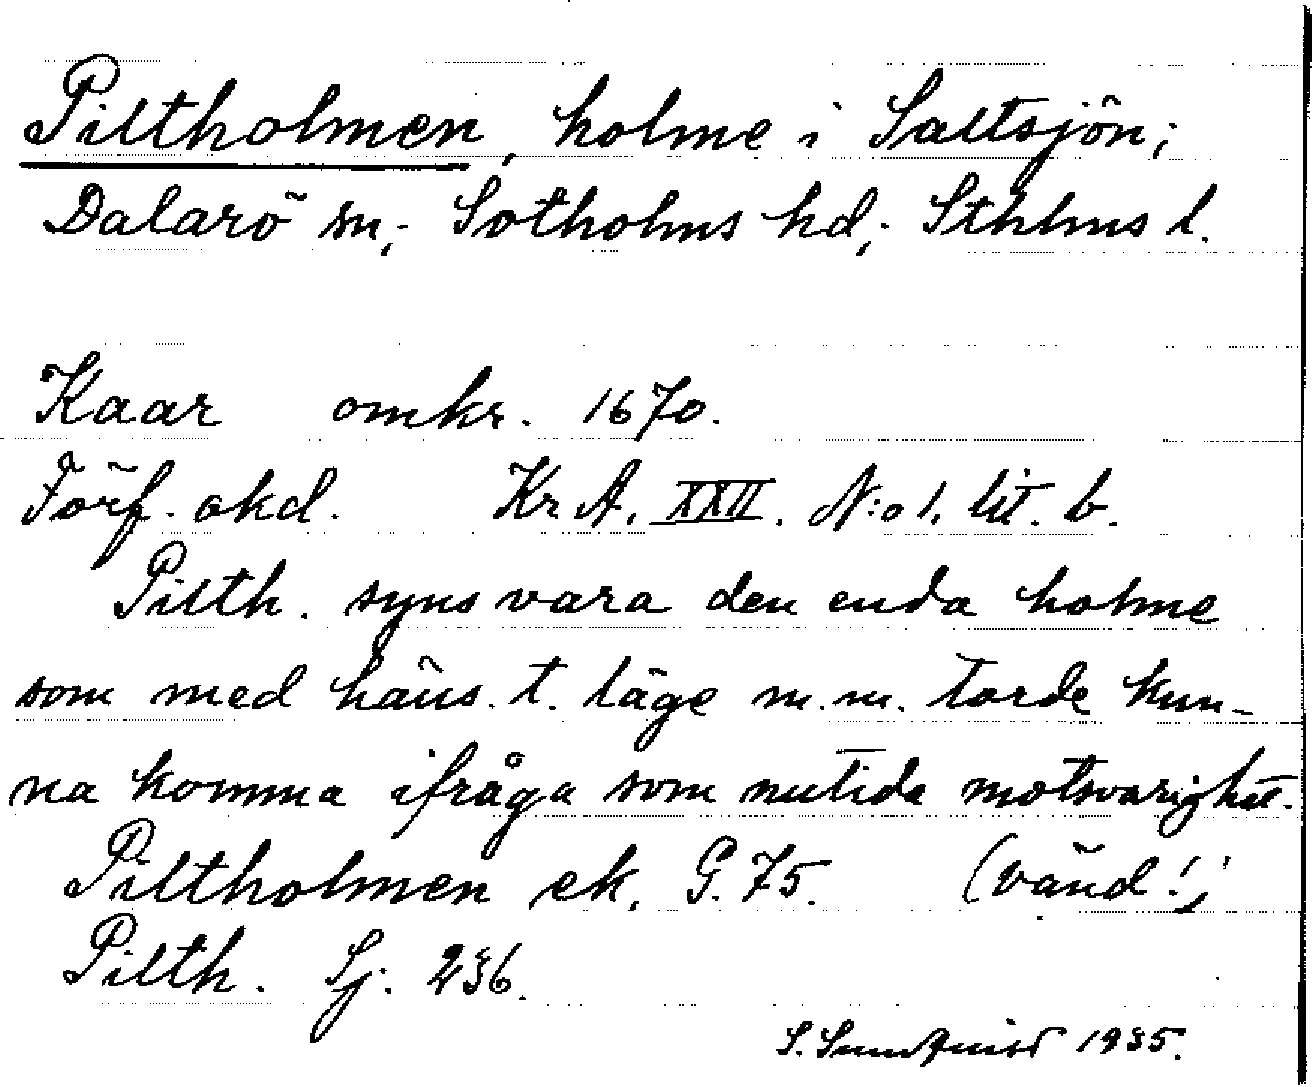 Piltholmen, holme i Saltsjön;
Dalarö sn; Sotholms hd; Sthlms l.
Kaar omkr. 1670.
Förf. okd. Kr A. XXII. N:o 1. lit. b.
Pilth. syns vara den enda holme
som med häns. t. läge m.m. torde kun-
na komma ifråga som nutida motsvarighet.
Piltholmen ek. G. 75. (vänd!)
Pilth. Sj. 236.
S. Sundquist 1935.